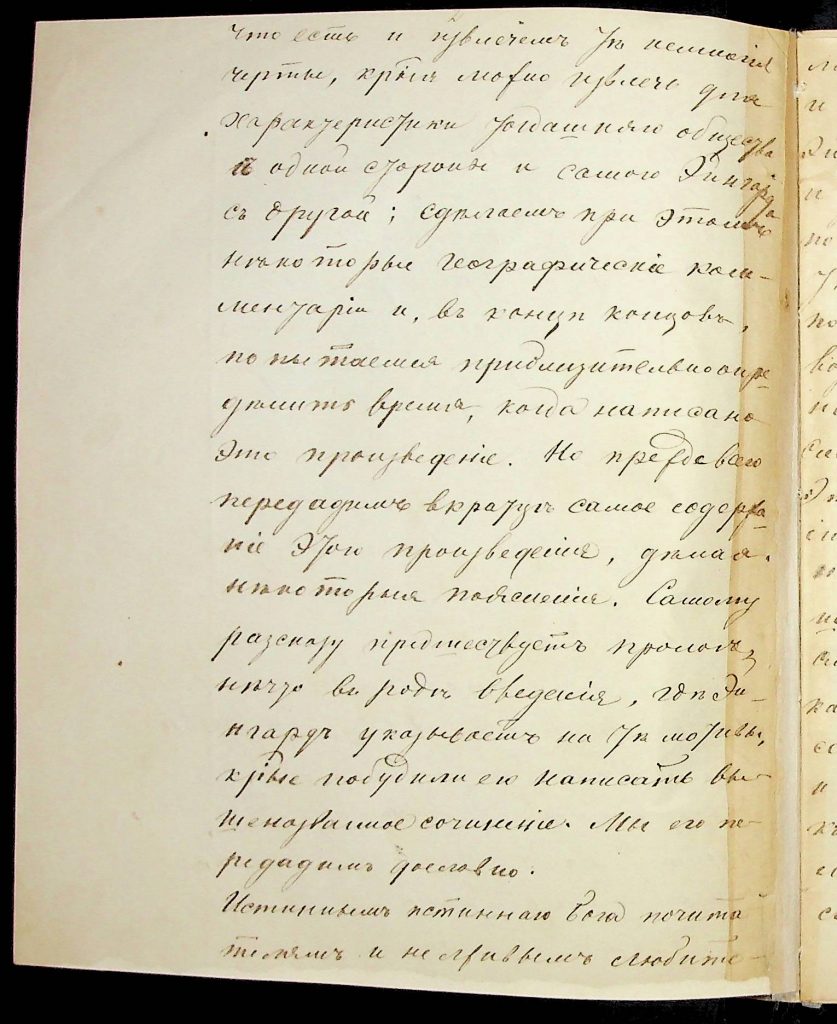 что есть и извлечемъ тѣ немногія
черты, крыя можно извлечь для
характеристики тогдашняго общества
съ одной стороны и самого Эингарда
съ другой; сдѣлаемъ при этомъ
нѣкоторые географическіе ком-
ментаріи и, въ концѣ концовъ,
попытаемся приблизительно опре-
дѣлить время, когда написано
это произведеніе. Но прежде всего
передадимъ вкратцѣ самое содержа-
ніе этого произведенія, дѣлая
нѣкоторыя поясненія. Самому
разсказу предшествуетъ прологъ,
нѣчто въ родѣ введенія, гдѣ Эи-
нгардъ указываетъ на тѣ мотивы,
крые побудили его написать вы-
шеназванное сочиненіе. Мы его пе-
редадимъ дословно.
Истиннымъ истиннаго Бога почита
телямъ и нелживымъ любите-